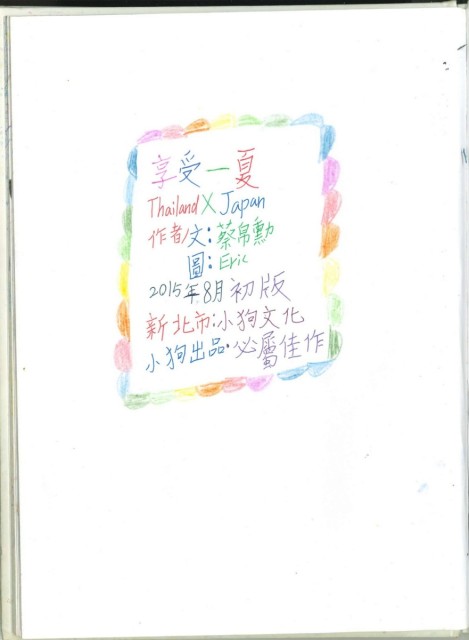 享受一夏
Thailand X Japan
作者/文:蔡帛勳
圖:Eric
2015年8月初版
新北市:小狗文化
小狗出品·必屬佳作